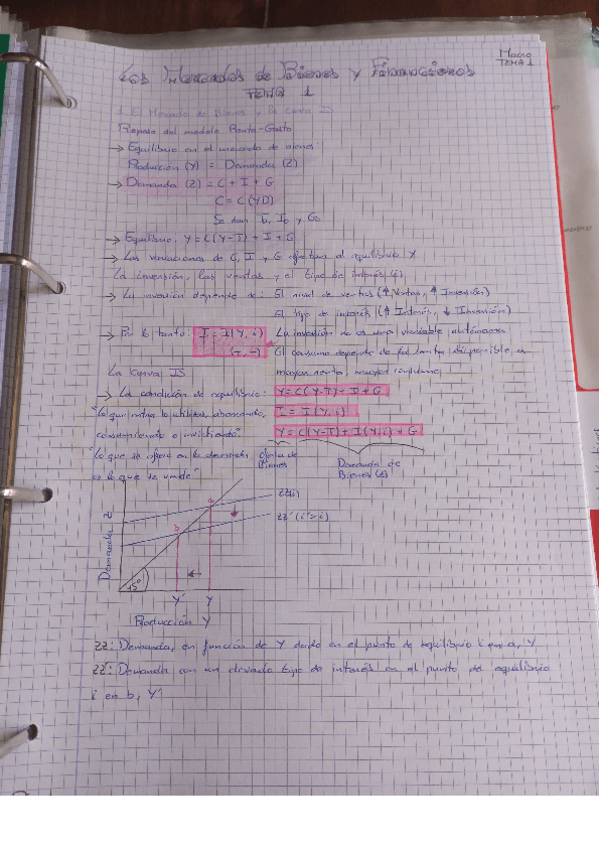 Macro
TEMA 1
Los Mercados de Bienes y Financieros
TEMA 1
1. El Mercado de Bienes y la curva IS
Repaso del modelo Renta-Gasto
→ Equilibrio en el mercado de bienes:
Producción (Y) = Demanda (Z)
→ Demanda (Z) = C + I + G
C = C(YD)
Se dan I0 y G0
→ Equilibrio: Y = C(Y-T) + I + G
→ Las variaciones de C, I y G afectan al equilibrio Y
La inversión, las ventas y el tipo de interés (i)
→ La inversión depende de: El nivel de ventas (↑ Ventas, ↑ Inversión)
El tipo de interés (↑ Interés, ↓ Inversión)
→ Por lo tanto: I = I(Y, i) La inversión no es una variable autónoma
(+, -) El consumo depende de la renta disponible, a
mayor renta, mayor consumo.
La Curva IS
→ La condición de equilibrio: Y = C(Y-T) + I + G
I = I(Y, i)
Y = C(Y-T) + I(Y, i) + G
"lo que se es lo que se vende"
Oferta de Bienes
Demanda de Bienes (Z)
Demanda Z
ZZ(i)
ZZ' (i'>i)
a
b
45°
Y' Y
Producción Y
ZZ: Demanda, en función de Y dado en el punto de equilibrio a, Y
ZZ': Demanda con un elevado tipo de interés en el punto de equilibrio
i en b, Y'